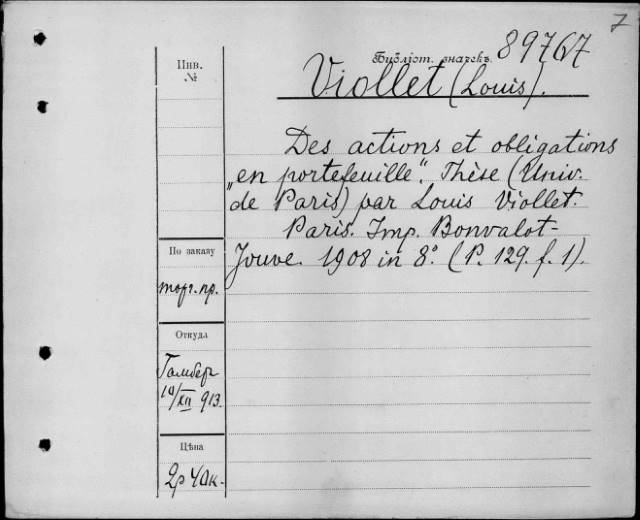 7
Библіот. значекъ. 89767
Инв.
№
Viollet (Louis).
Des actions et obligations
„en portefeuille“. Thèse (Univ.
de Paris) par Louis Viollet.
Paris. Imp. Bonvalot-
Jouve. 1908 in 8° (P. 129. f. 1).
По заказу
торг. пр.
Откуда
Гамбер
10/XII 913.
Цѣна
2р 40к.